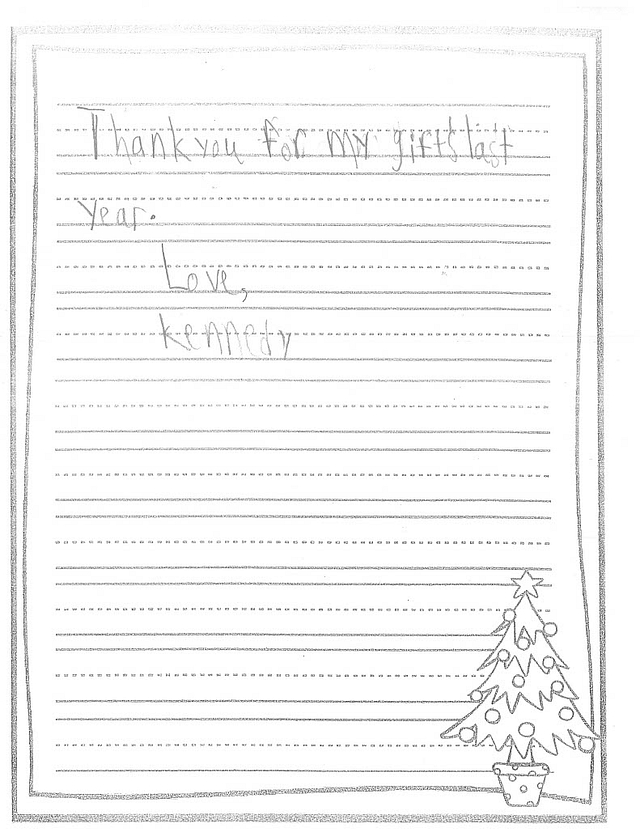 Thank you for my gifts last
year.
Love,
Kennedy